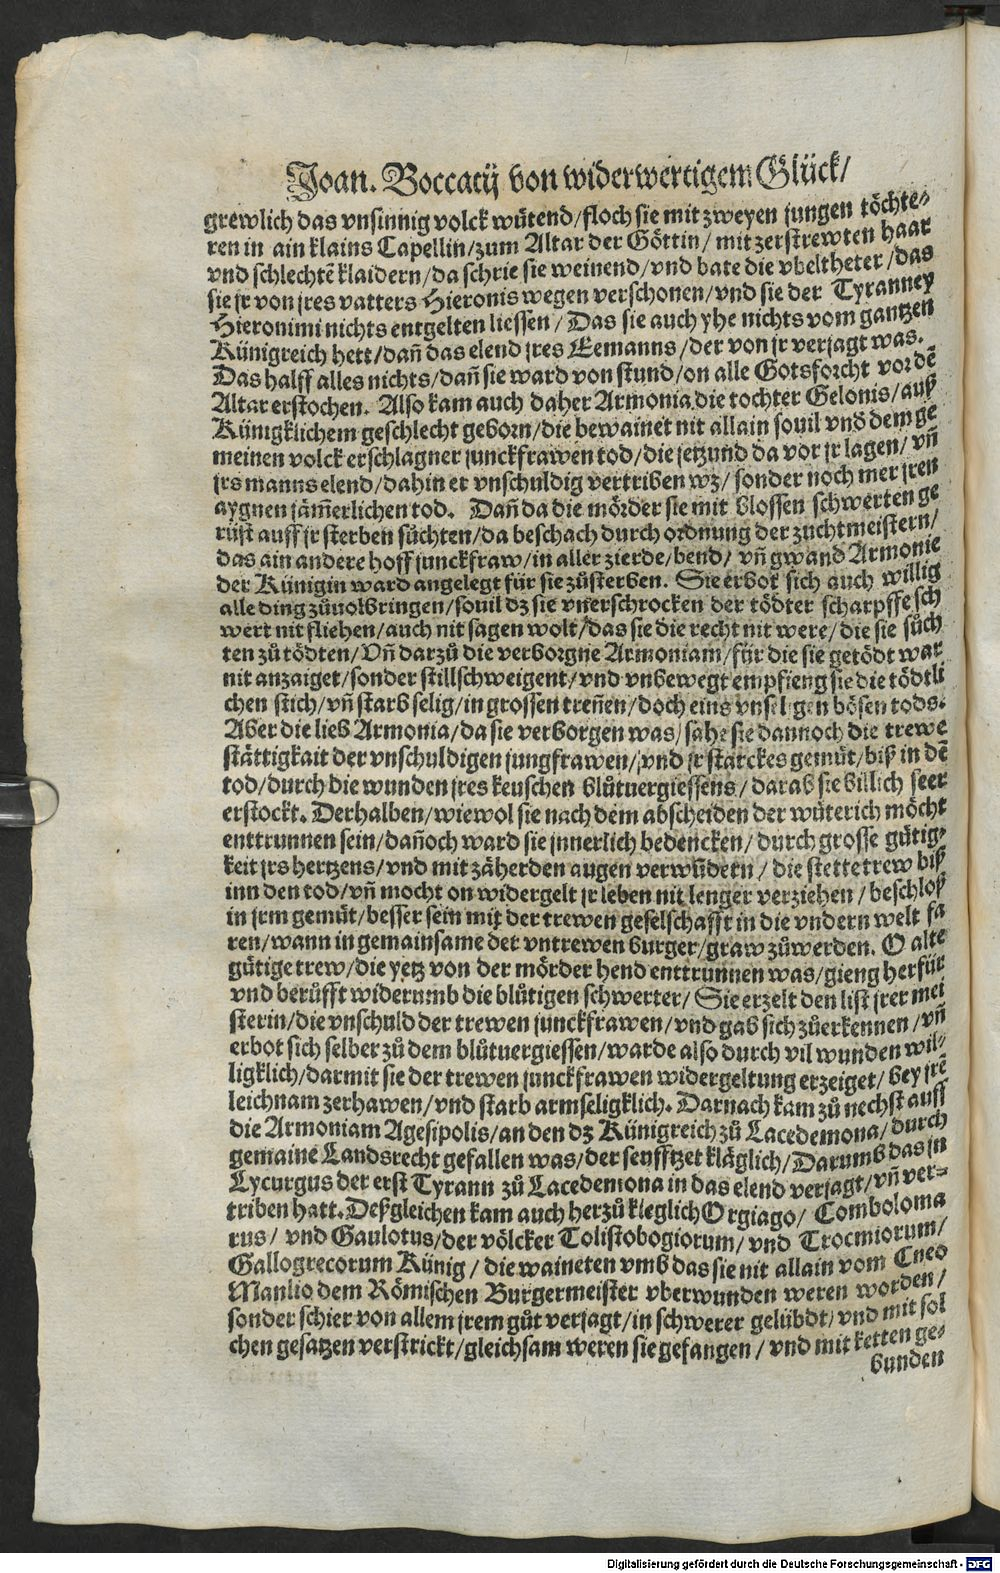 Joan. Boccatij von widerwertigem Glück/
grewlich das vnsinnig volck wütend/floch sie mit zweyen jungen töchte⸗
ren in ain klains Capellin/zum Altar der Göttin/ mit zerstrewten haar
vnd schlechtē klaidern/da schrie sie weinend/vnd bate die vbeltheter/das
sie jr von jres vatters Hieronis wegen verschonen/vnd sie der Tyranney
Hieronimi nichts entgelten liessen/ Das sie auch yhe nichts vom gantzen
Künigreich hett/dañ das elend jres Eemanns/der von jr verjagt was.
Das halff alles nichts/dañ sie ward von stund/on alle Gotsforcht vor dē
Altar erstochen. Also kam auch daher Armonia die tochter Gelonis/auß
Künigklichem geschlecht geborn/die bewainet nit allain souil vnd dem ge
meinen volck erschlagner junckfrawen tod/die jetzund da vor jr lagen/vñ
jrs manns elend/dahin er vnschuldig vertriben wz/sonder noch mer jren
aygnen jäm̄erlichen tod. Dañ da die mörder sie mit blossen schwerten ge
rüst auff jr sterben sůchten/da beschach durch ordnung der zuchtmeistern/
das ain andere hoff junckfraw/in aller zierde/bend/ vñ gwand Armonie
der Künigin ward angelegt für sie zůsterben. Sie erbot sich auch willig
alle ding zůuolbringen/souil dz sie vnerschrocken der tödter scharpffe sch
wert nit fliehen/auch nit sagen wolt/das sie die recht nit were/die sie sůch
ten zů tödten/Vñ darzů die verborgne Armoniam/für die sie getödt war
nit anzaiget/sonder stillschweigent/vnd vnbewegt empfieng sie die tödtli
chen stich/vñ starb selig/in grossen treñen/doch eins vnseligen bösen tods.
Aber die lieb Armonia/da sie verborgen was/sahe sie dannoch die trewe
stättigkait der vnschuldigen jungfrawen/vnd jr starckes gemüt/biß in dē
tod/durch die wunden jres keuschen blůtuergiessens/darab sie billich seer
erstockt. Derhalben/wiewol sie nach dem abscheiden der wüterich möcht
enttrunnen sein/dañoch ward sie jnnerlich bedencken/durch grosse gütig⸗
keit jrs hertzens/vnd mit zäherden augen verwũdern/ die stette trew biß
inn den tod/vñ mocht on widergelt jr leben nit lenger verziehen/beschloß
in jrm gemüt/besser sein mit der trewen geselschafft in die vndern welt fa
ren/wann in gemainsame der vntrewen burger/graw zůwerden. O alte
gütige trew/die yetz von der mörder hend enttrunnen was/gieng herfür
vnd berůfft widerumb die blůtigen schwerter/ Sie erzelt den list jrer mei
sterin/die vnschuld der trewen junckfrawen/vnd gab sich zůerkennen/vñ
erbot sich selber zů dem blůtuergiessen/warde also durch vil wunden wil⸗
ligklich/darmit sie der trewen junckfrawen widergeltung erzeiget/bey jrē
leichnam zerhawen/vnd starb armseligklich. Darnach kam zů nechst auff
die Armoniam Agesipolis/an den dz Künigreich zů Lacedemona/durch
gemaine Landsrecht gefallen was/der seufftzet kläglich/Darumb das jn
Lycurgus der erst Tyrann zů Lacedemona in das elend verjagt/vñ ver⸗
triben hatt. Deßgleichen kam auch herzů kleglich Orgiago/ Comboloma
rus/ vnd Gaulotus/der völcker Tolistobogiorum/vnd Trocmiorum/
Gallogrecorum Künig/ die waineten vmb das sie nit allain vom Cneo
Manlio dem Römischen Burgermeister vberwunden weren worden/
sonder schier von allem jrem gůt verjagt/in schwerer gelübdt/vnd mit sol
chen gesatzen verstrickt/gleichsam weren sie gefangen/ vnd mit ketten ge⸗
bunden
Digitalisierung gefördert durch die Deutsche Forschungsgemeinschaft - DFG